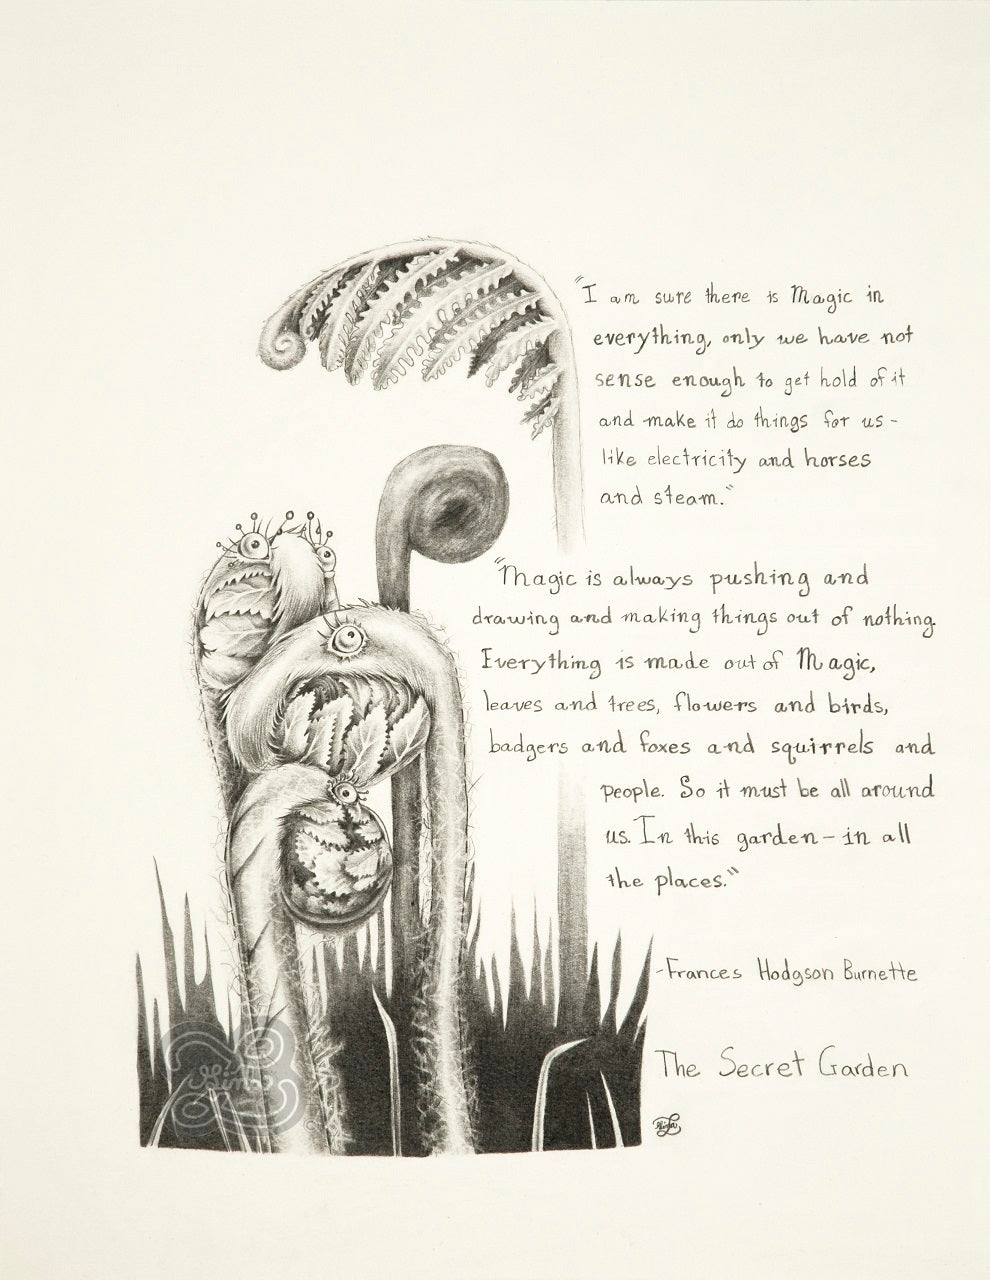 "I am sure there is Magic in
everything, only we have not
sense enough to get hold of it
and make it do things for us -
like electricity and horses
and steam."
"Magic is always pushing and
drawing and making things out of nothing.
Everything is made out of Magic,
leaves and trees, flowers and birds,
badgers and foxes and squirrels and
people. So it must be all around
us. In this garden - in all
the places."
-Frances Hodgson Burnette
The Secret Garden